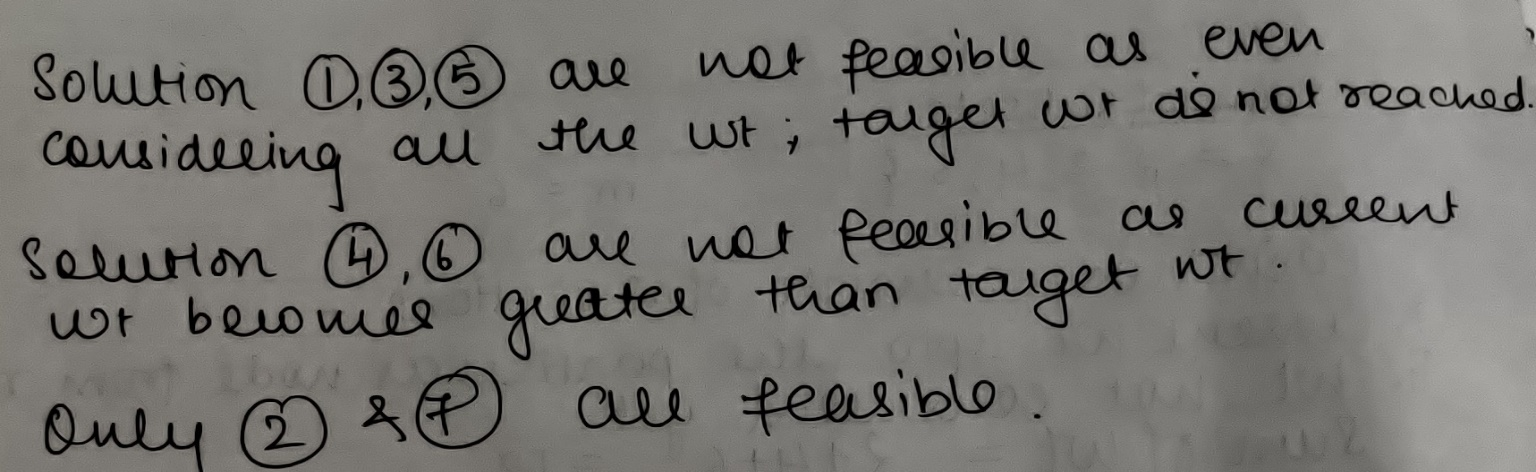 Solution ①,③,⑤ are not feasible as even
considering all the wt ; target wt do not reached.
Solution ④,⑥ are not feasible as current
wt becomes greater than target wt .
Only ② & ⑦ are feasible .